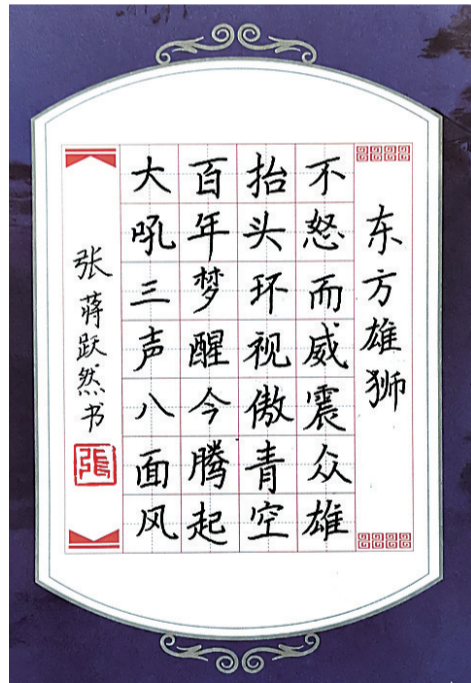 东方雄狮
不怒而威震众雄
抬头环视傲青空
百年梦醒今腾起
大吼三声八面风
张蒋跃然书
張